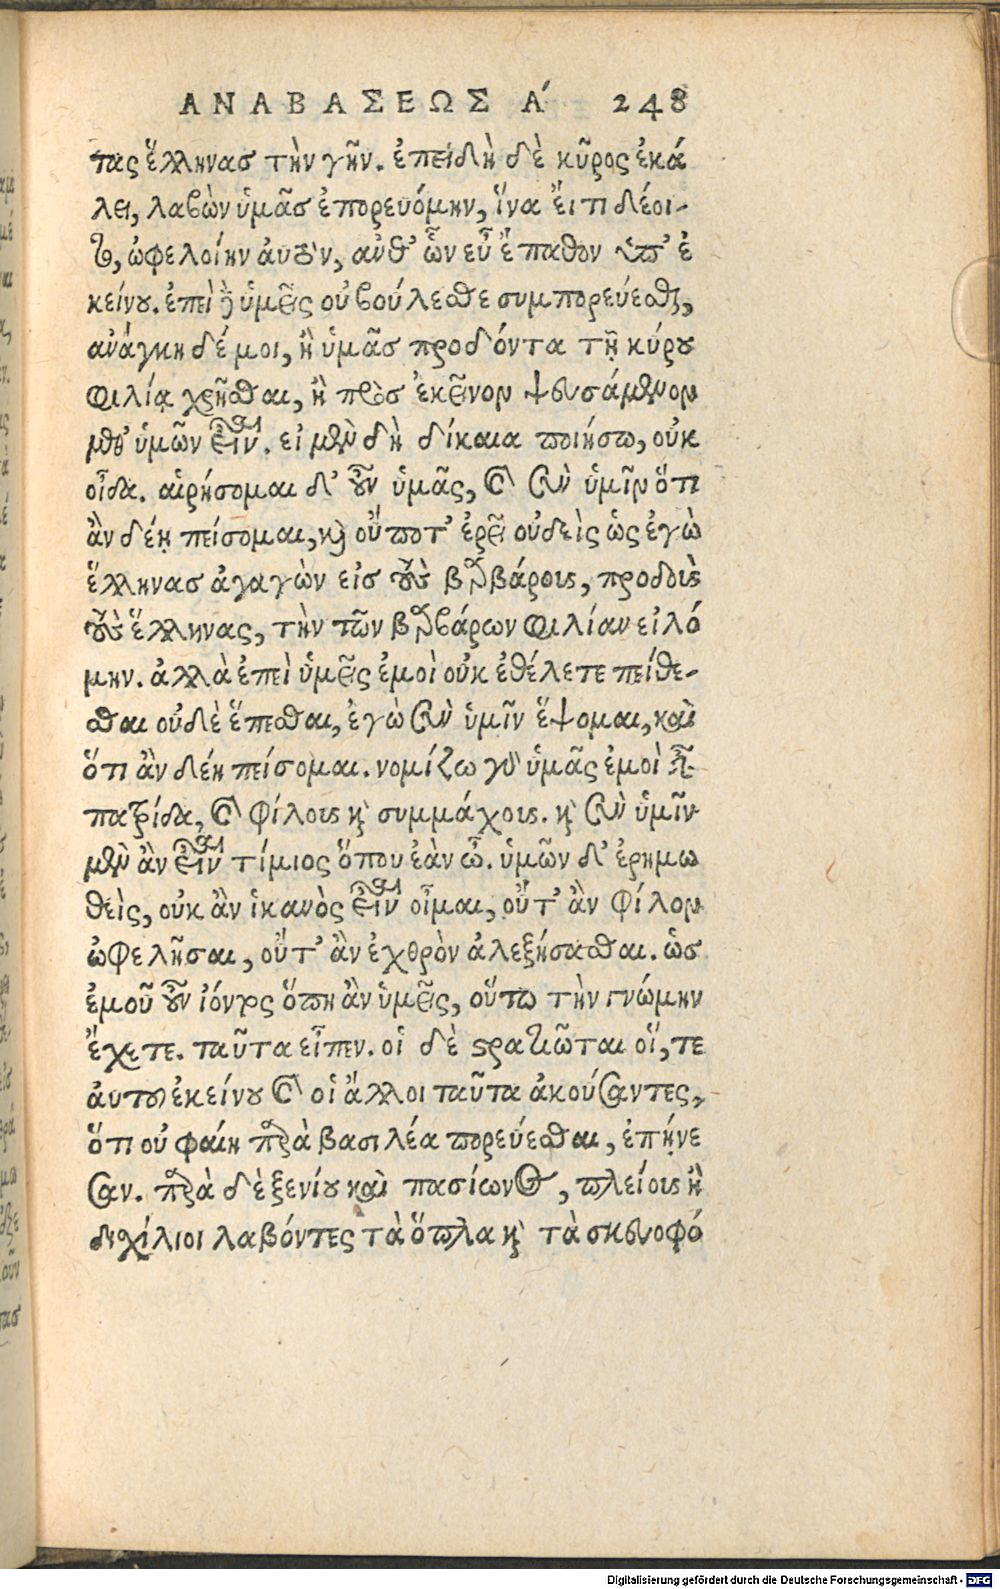 ΑΝΑΒΑΣΕΩΣ Α´ 248
τας ἕλληνας τὴν γῆν. ἐπειδὴ δὲ κῦρος ἐκά
λει, λαβὼν ὑμᾶς ἐπορευόμην, ἵνα ἔι τι δέοι-
το, ὠφελοίην ἀυτὸν, ἀνθ' ὧν εὖ ἔπαθον ὑπ' ἐ
κείνου. ἐπεὶ δὲ ὑμεῖς οὐ βούλεσθε συμπορεύεσθαι,
ἀνάγκη δέ μοι, ἢ ὑμᾶς προδόντα τῇ κύρου
φιλίᾳ χρῆσθαι, ἢ πρὸς ἐκεῖνον ψευσάμενον
μεθ' ὑμῶν εἶναι. εἰ μὲν δὴ δίκαια ποιήσω, οὐκ
οἶδα. αἱρήσομαι δ' οὖν ὑμᾶς, καὶ σὺν ὑμῖν ὅτι
ἂν δέῃ πείσομαι, καὶ οὔποτ' ἐρεῖ οὐδεὶς ὡς ἐγὼ
ἕλληνας ἀγαγὼν εἰς τοὺς βαρβάρους, προδοὺς
τοὺς ἕλληνας, τὴν τῶν βαρβάρων φιλίαν εἱλό
μην. ἀλλὰ ἐπεὶ ὑμεῖς ἐμοὶ οὐκ ἐθέλετε πείθε-
σθαι οὐδὲ ἕπεσθαι, ἐγὼ σὺν ὑμῖν ἕψομαι, καὶ
ὅτι ἂν δέῃ πείσομαι. νομίζω γὰρ ὑμᾶς ἐμοὶ εἶναι
πατρίδα, καὶ φίλους καὶ συμμάχους. καὶ σὺν ὑμῖν
μὲν ἂν εἶναι τίμιος ὅπου ἐὰν ὦ. ὑμῶν δ' ἐρημω
θεὶς, οὐκ ἂν ἱκανὸς εἶναι οἶμαι, οὔτ' ἂν φίλον
ὠφελῆσαι, οὔτ' ἂν ἐχθρὸν ἀλεξήσασθαι. ὡς
ἐμοῦ οὖν ἰόντος ὅπη ἂν ὑμεῖς, οὕτω τὴν γνώμην
ἔχετε. ταῦτα εἶπεν. οἱ δὲ στρατιῶται οἵ, τε
ἀυτοῦ ἐκείνου καὶ οἱ ἄλλοι ταῦτα ἀκούσαντες,
ὅτι οὐ φαίη παρὰ βασιλέα πορεύεσθαι, ἐπῄνε
σαν. παρὰ δὲ ξενίου καὶ πασίωνος, πλείους ἢ
δισχίλιοι λαβόντες τὰ ὅπλα καὶ τὰ σκευοφό
Digitalisierung gefördert durch die Deutsche Forschungsgemeinschaft - DFG